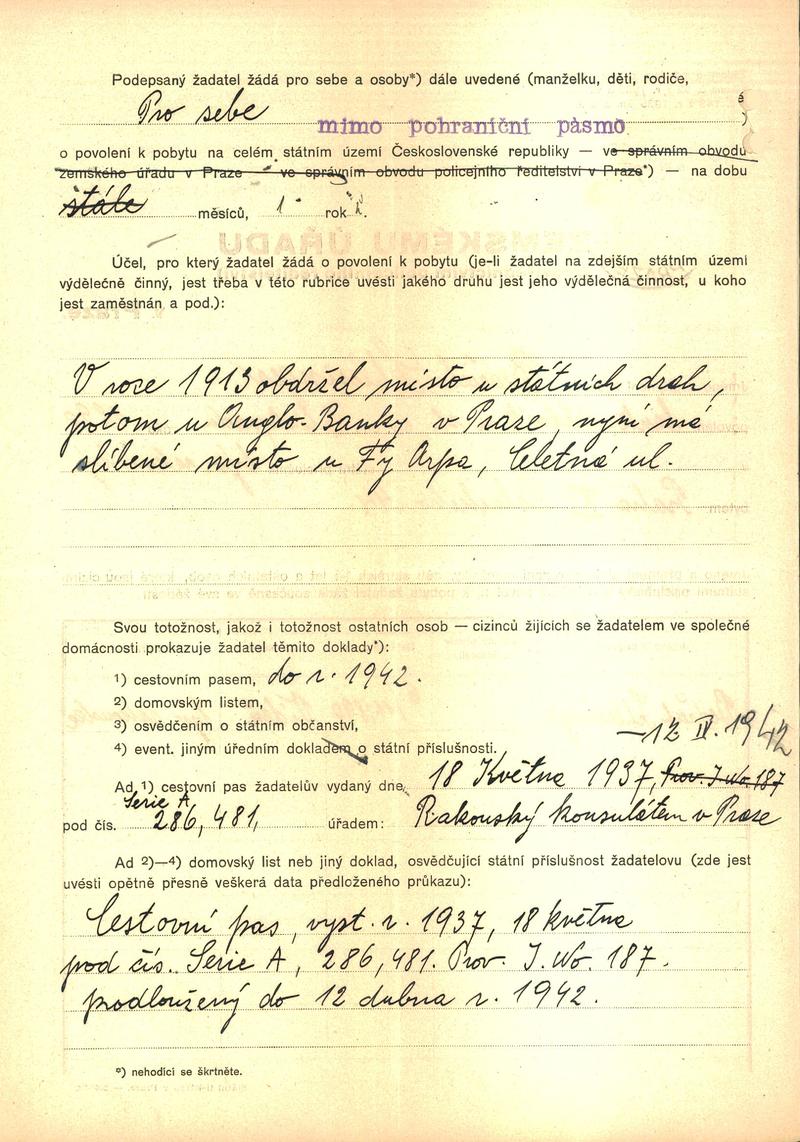 Podepsaný žadatel žádá pro sebe a osoby*) dále uvedené (manželku, děti, rodiče,
Pro sebe
mimo pohraniční pásmo
o povolení k pobytu na celém státním území Československé republiky — ve správním obvodu
zemského úřadu v Praze — ve správním obvodu policejního ředitelství v Praze*) — na dobu
stále měsíců, 1 rok
Účel, pro který žadatel žádá o povolení k pobytu (je-li žadatel na zdejším státním území
výdělečně činný, jest třeba v této rubrice uvésti jakého druhu jest jeho výdělečná činnost, u koho
jest zaměstnán a pod.):
V roce 1913 obdržel místo u státních drah,
potom u Anglo-Banky v Praze, nyní má
slíbené místo u Fy Arpa, Celetná ul.
Svou totožnost, jakož i totožnost ostatních osob — cizinců žijících se žadatelem ve společné
domácnosti prokazuje žadatel těmito doklady*):
1) cestovním pasem, do r. 1942.
2) domovským listem,
3) osvědčením o státním občanství,
4) event. jiným úředním dokladem o státní příslušnosti.
—12 IV. 1942
Ad 1) cestovní pas žadatelův vydaný dne 18 Května 1937, Prov. J. No. 187
Serie A
pod čís. 286,481, úřadem: Rakouský konsulátem v Praze
Ad 2)—4) domovský list neb jiný doklad, osvědčující státní příslušnost žadatelovu (zde jest
uvésti opětně přesně veškerá data předloženého průkazu):
Cestovní pas, vyst. r. 1937, 18 května
pod čís. Serie A, 286,481. Prov. J. No. 187.
prodloužený do 12 dubna r. 1942.
*) nehodící se škrtněte.